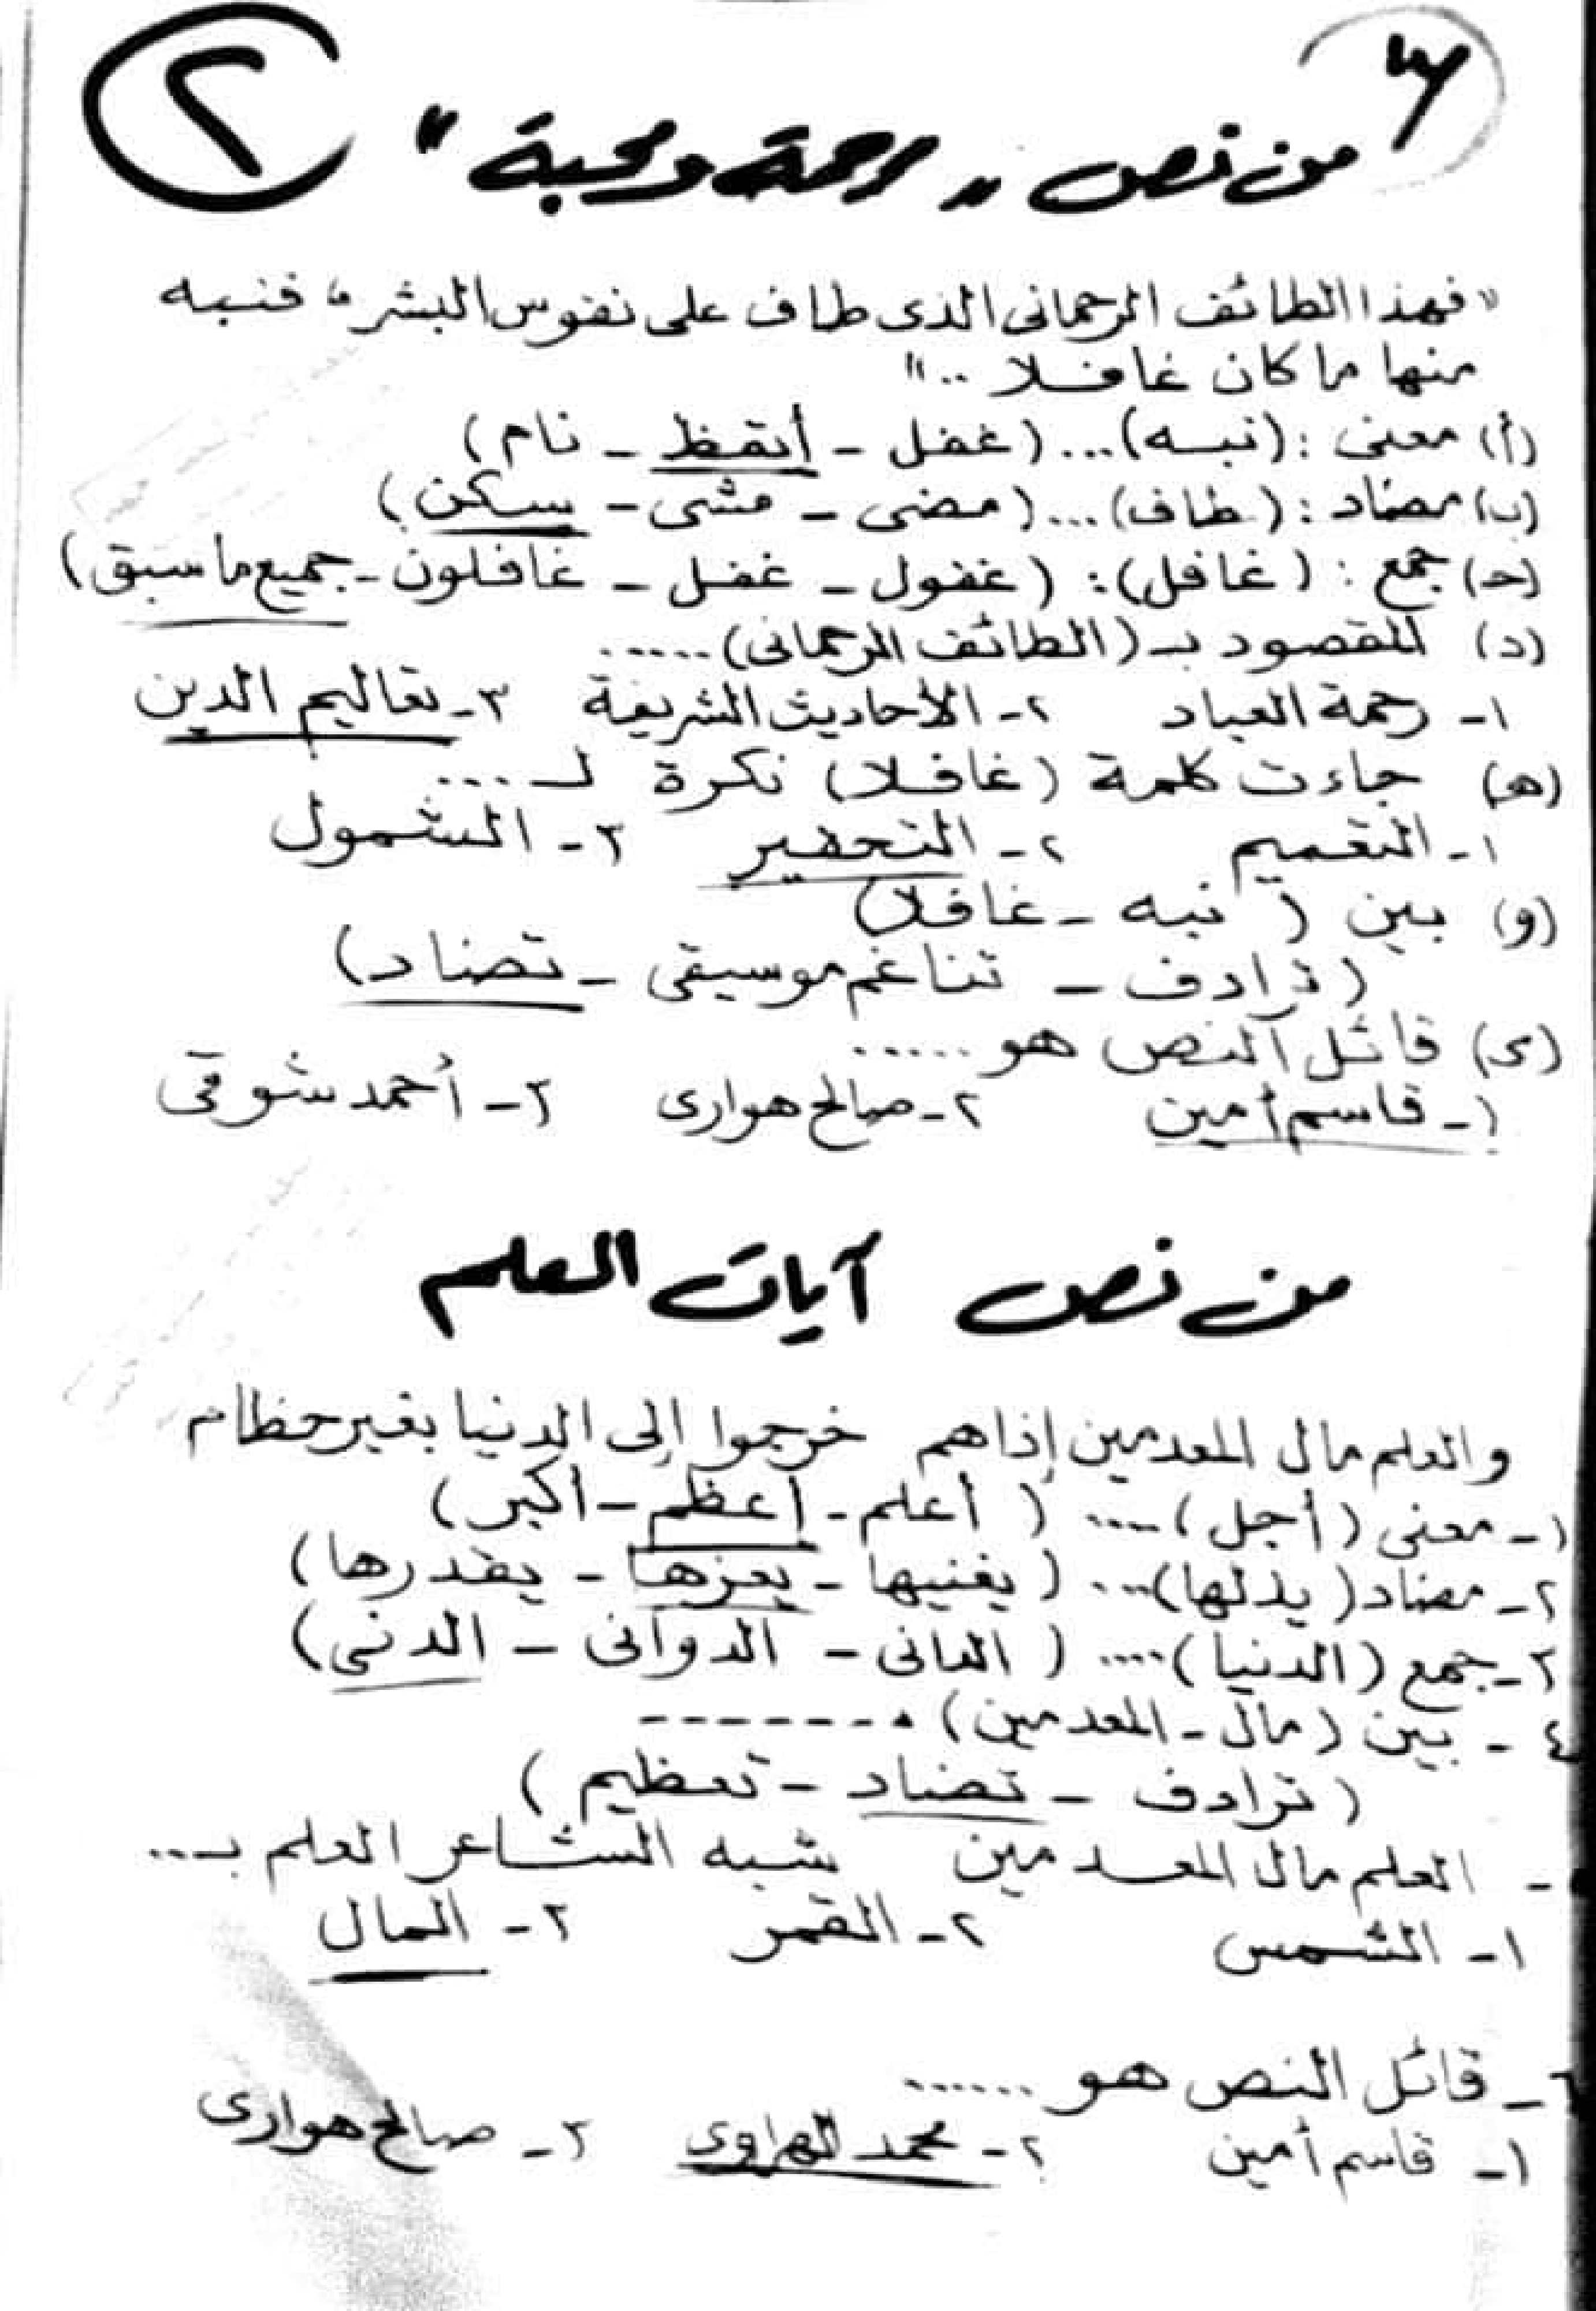 ٣
٢
من نص " رحمة ومحبة "
" فهذا الطائف الرحمانى الذى طاف على نفوس البشر، فنبه
منها ما كان غافلا .. "
(أ) معنى : (نبه) ... (غفل - أيقظ - نام)
(ب) مضاد : (طاف) ... (مضى - مشى - سكن)
(حـ) جمع : (غافل) : (غفول - غفل - غافلون - جميع ما سبق)
(د) المقصود بـ (الطائف الرحمانى) .....
١- رحمة العباد ٢- الأحاديث الشريفة ٣- تعاليم الدين
(هـ) جاءت كلمة (غافلا) نكرة لـ ...
١- التعميم ٢- التحقير ٣- الشمول
(و) بين (نبه - غافلا)
(ترادف - تناغم موسيقى - تضاد)
(ى) قائل النص هو .....
١- قاسم أمين ٢- صالح هوارى ٣- أحمد شوقى
من نص آيات العلم
والعلم مال المعدمين إذا هم خرجوا إلى الدنيا بغير حطام
١- معنى (أجل) .... (أعلم - أعظم - أكبر)
٢- مضاد (يذلها) ... (يغنيها - يعزها - يقدرها)
٣- جمع (الدنيا) .... (الدانى - الدوانى - الدنى)
٤- بين (مال - المعدمين) . -------
(ترادف - تضاد - تعظيم)
- العلم مال المعدمين شبه الشاعر العلم بـ ...
١- الشمس ٢- القمر ٣- المال
٦- قائل النص هو ......
١- قاسم أمين ٢- محمد الهراوى ٣- صالح هوارى